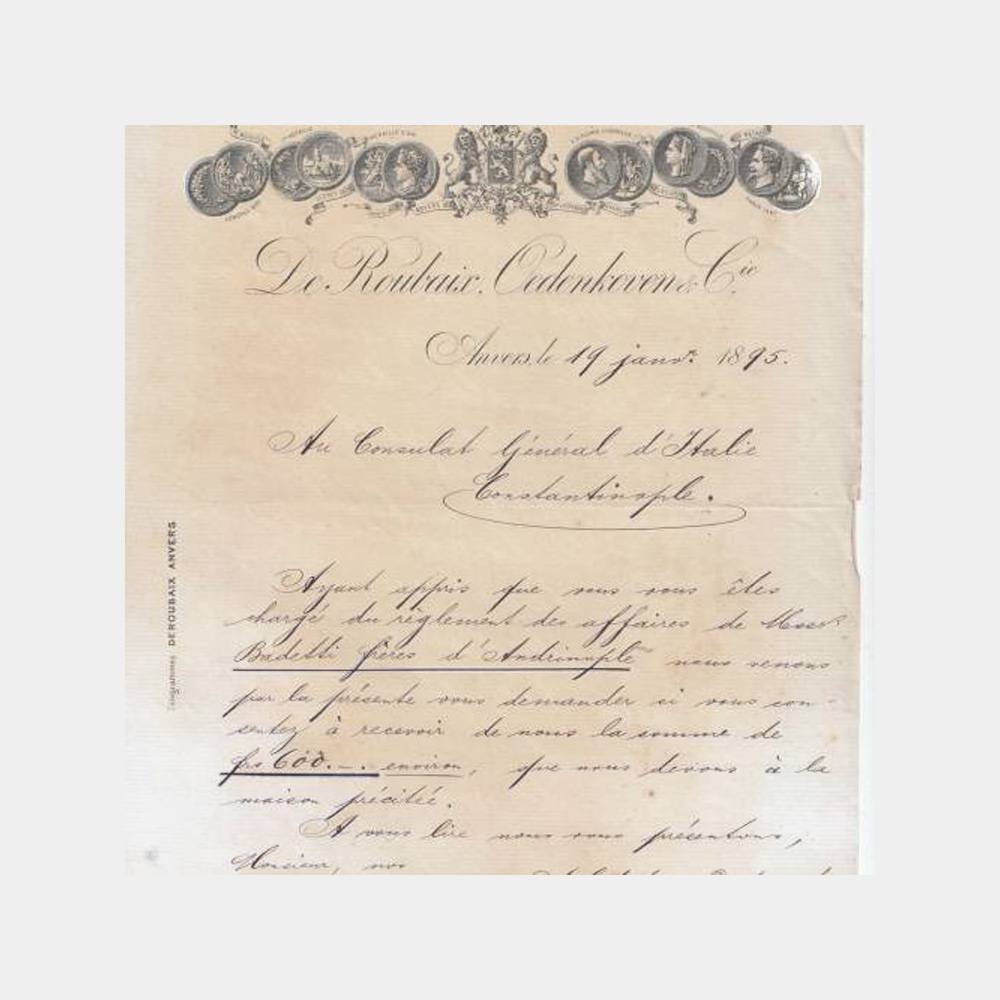 De Roubaix, Oedenkoven & Cie.
Anvers, le 19 janvr. 1895.
Au Consulat Général d'Italie
Constantinople.
Télégrammes DEROUBAIX ANVERS
Ayant appris que vous vous êtes
chargé du règlement des affaires de Messrs
Badetti frères d'Andrinople nous venons
par la présente vous demander si vous con-
sentez à recevoir de nous la somme de
frs 600.-. environ, que nous devons à la
maison précitée.
A vous lire nous vous présentons,
Monsieur, nos